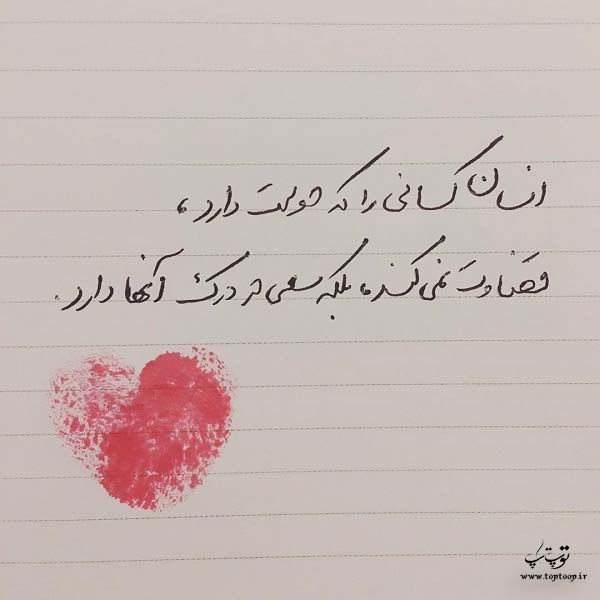 انسان کسانی را که دوست دارد،
قضاوت نمی‌کند، بلکه سعی در درک آنها دارد.
توپ تاپ
www.toptoop.ir